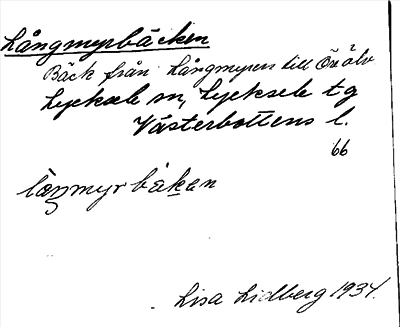 Långmyrbäcken
Bäck från Långmyren till Öreälv
Lycksele sn, Lycksele tg
Västerbottens l.
66
låŋmyrbäkan
Lisa Lidberg 1934.